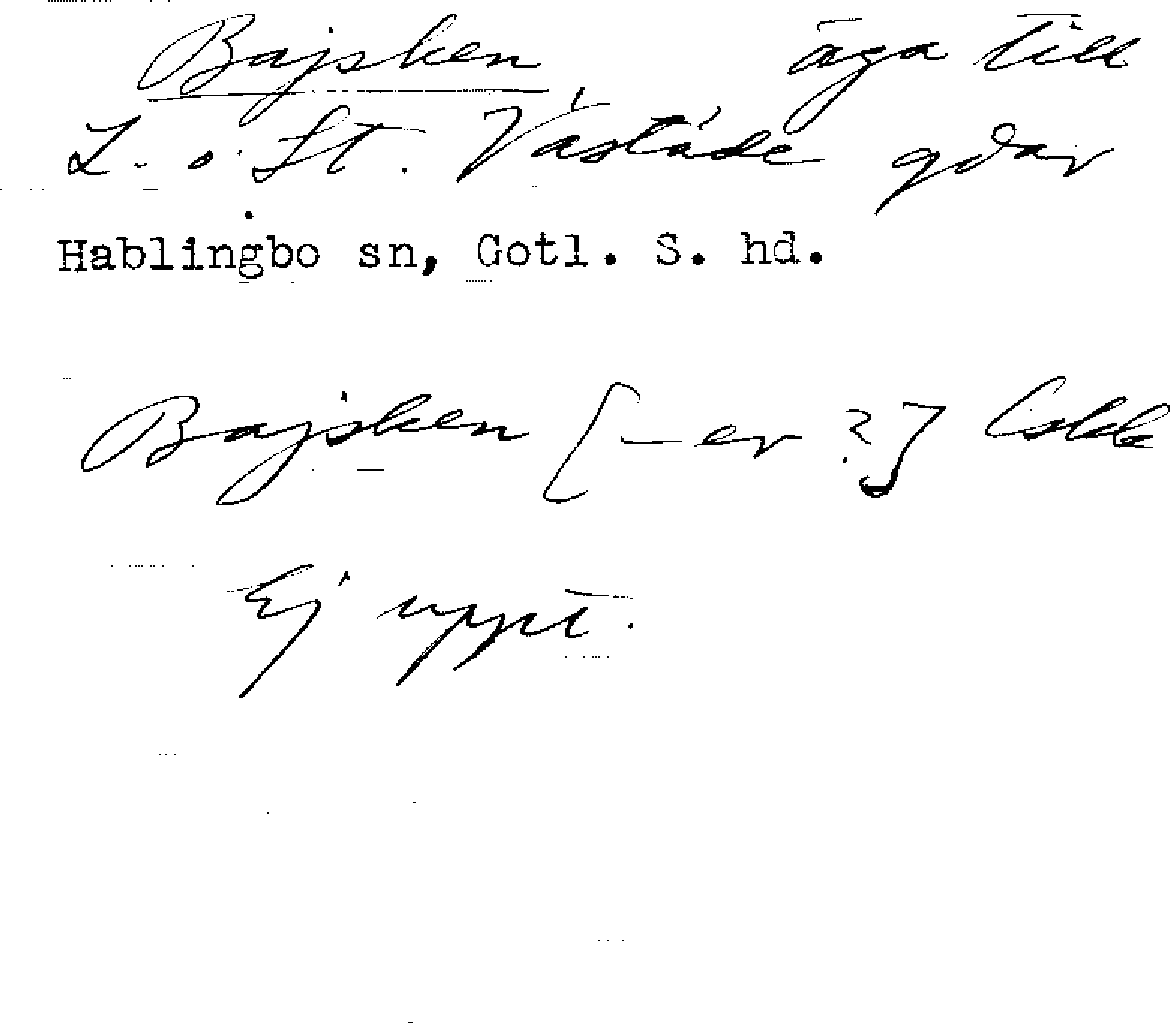 Bajsken äga till
L. o. St. Västäde gdar
Hablingbo sn, Gotl. S. hd.
Bajsken [–er ?] Cskk
Ej uppt.